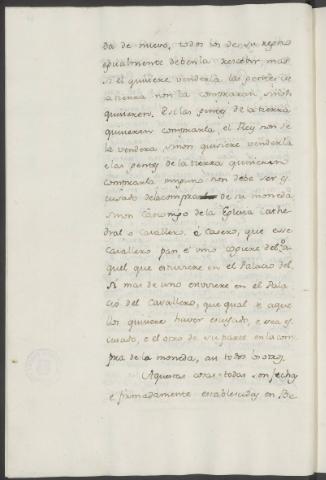 da de nuevo, todos los de su regno
egualmente deben la rescebir, mas
si el quisiere venderla las gentes de
a tierra non la compraran sinon
quisieren. E si las gentes de la tierra
quisieren comprarla, el Rey non se
la vendera sinon quisiere venderla
e las gentes de la tierra quisieren
comprarla ninguno non debe ser es
cusado de la compra de su moneda
sinon Canonigo de la Eglesia Cathe
dral o Cavallero, e Casero, que esse
Cavallero pan e vino cogiere del o a
quel que estuviere en el Palacio del.
A mas de uno estuviere en el Pala
cio del Cavallero, que qual de aque
llos quisiere haver escusado, e sea es
cusado, e el otro de su parte en la com
pra de la moneda, an todos los otros
Aquestas cosas todas son fechas
e firmadamente establecidas en Be